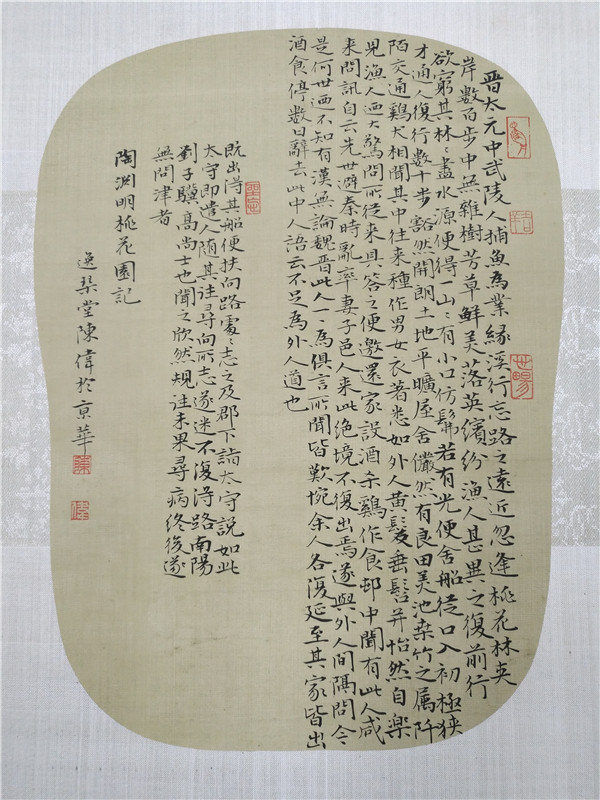 晉太元中武陵人捕魚為業緣溪行忘路之遠近忽逢桃花林夹
岸數百步中無雜樹芳草鮮美落英繽紛漁人甚異之復前行
欲窮其林〻盡水源便得一山〻有小口仿髴若有光便舍船從口入初極狹
才通人復行數十步豁然開朗土地平曠屋舍儼然有良田美池桑竹之属阡
陌交通鷄犬相聞其中往来種作男女衣著悉如外人黄髮垂髫并怡然自樂
見漁人迺大驚問所從来具答之便邀還家設酒杀鷄作食邨中聞有此人咸
来問訊自云先世避秦時亂率妻子邑人来此绝境不復出焉遂與外人間隔問今
是何世迺不知有漢無論魏晉此人一〻為俱言所聞皆歎惋余人各復延至其家皆出
酒食停數日辭去此中人語云不足為外人道也
既出得其船便扶向路處〻志之及郡下詣太守說如此
太守即遣人随其往尋向所志遂迷不復得路南陽
劉子驥高尚士也聞之欣然規往未果尋病终後遂
無問津者
陶渊明桃花園記
逸琹堂陳偉於京華
陳
偉